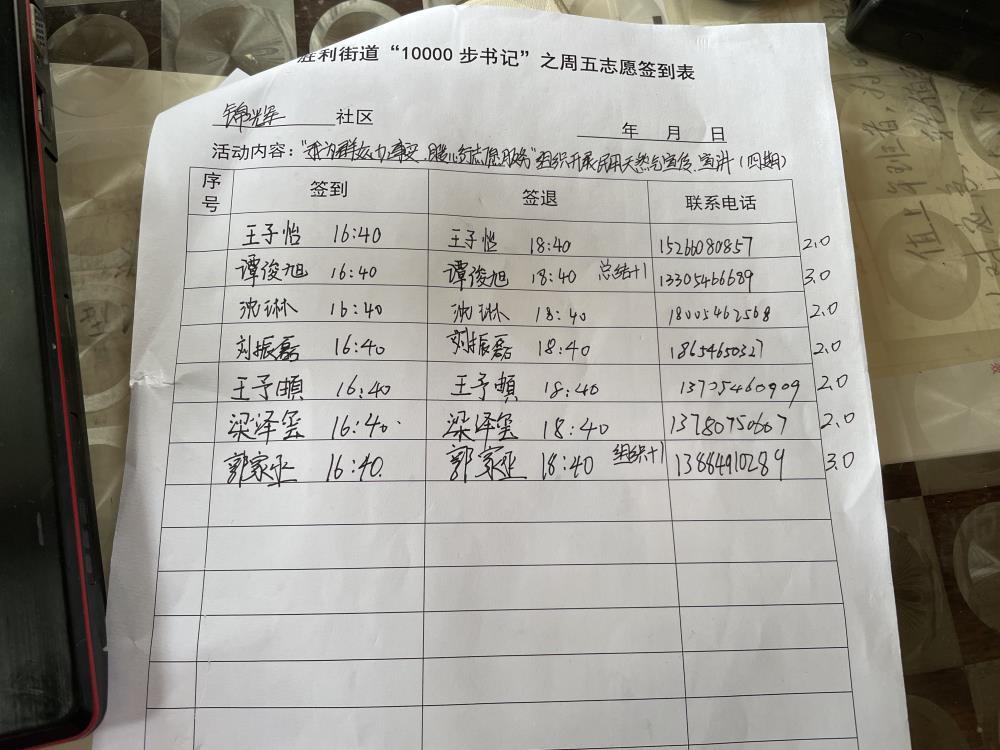 胜利街道“10000步书记”之周五志愿签到表
锦辉 社区
年 月 日
活动内容：“我为群众办事实 志愿服务”组织开展民用天然气宣传、宣讲（四期）
序号 签到 签退 联系电话
王子怡 16:40 王子怡 18:40 15266080857 2.0
谭俊旭 16:40 谭俊旭 18:40 总结+1 13305466689 3.0
沈琳 16:40 沈琳 18:40 18005462568 2.0
刘振磊 16:40 刘振磊 18:40 18654650327 2.0
王予 16:40 王予 18:40 13705460909 2.0
梁泽玺 16:40 梁泽玺 18:40 13780750667 2.0
郭家业 16:40 郭家业 18:40 组织+1 13884910289 3.0